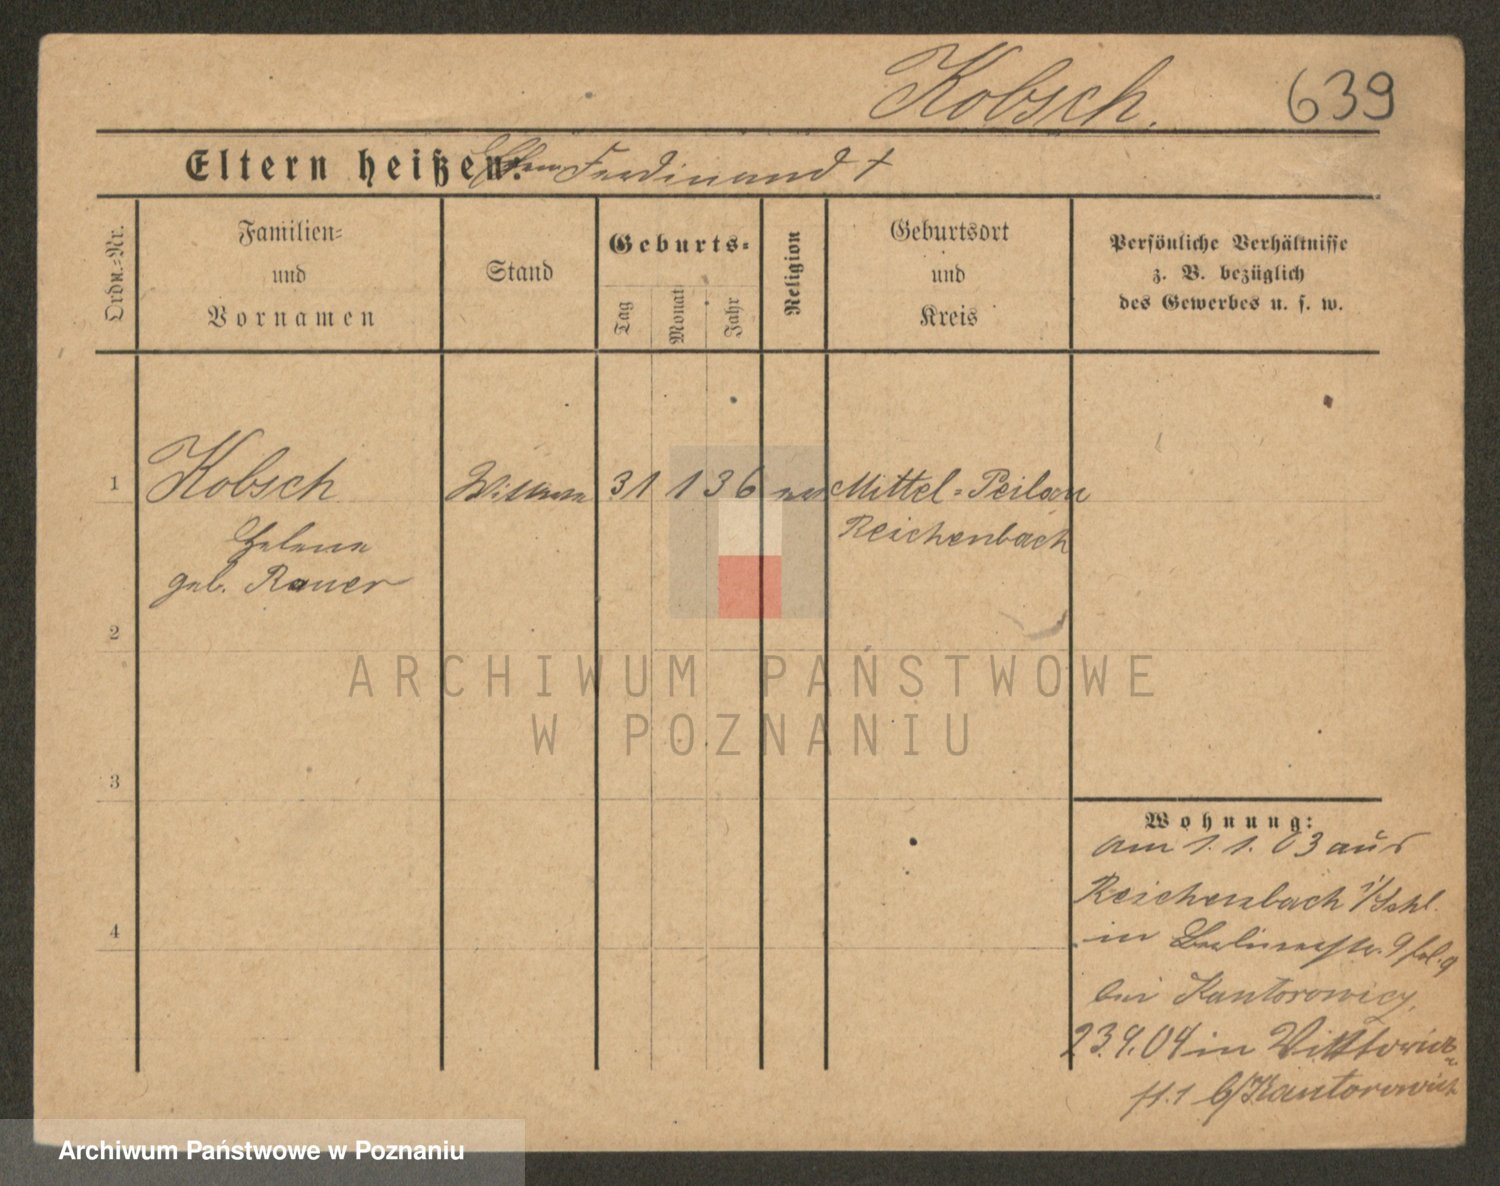 Kobsch.
639
Eltern heißen: Ferdinand †
Ordn.-Nr.
Familien-
und
Vornamen
Stand
Geburts-
Tag
Monat
Jahr
Religion
Geburtsort
und
Kreis
Persönliche Verhältnisse
z. B. bezüglich
des Gewerbes u. s. w.
1
Kobsch
Helene
geb. Rauer
Wittwe
31 1 36
Mittel-Peilau
Reichenbach
2
3
4
Wohnung:
am 1. 1. 03 aus
Reichenbach i/Schl.
in Berlinerstr. 9
bei Kantorowicz.
23.9.04 in Viktoria
st. 1 b/Kantorowicz
ARCHIWUM PAŃSTWOWE
W POZNANIU
Archiwum Państwowe w Poznaniu